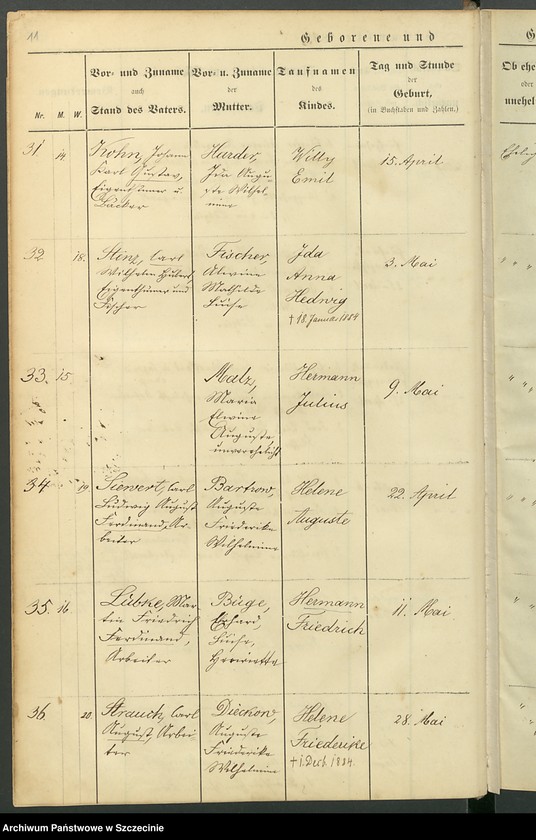 11
Geborene und
Nr.
M.
W.
Vor- und Zuname
auch
Stand des Vaters.
Vor- u. Zuname
der
Mutter.
Taufnamen
des
Kindes.
Tag und Stunde
der
Geburt,
(in Buchstaben und Zahlen.)
Ob ehe
oder
unehel
31
14
Kohn, Johann
Karl Gustav,
Eigenthümer u.
Bäcker
Harder,
Ida Augu-
ste Wilhel-
mine
Willy
Emil
15. April
32
18.
Stenz, Carl
Wilhelm Hubert,
Eigenthümer und
Fischer
Fischer,
Alwine
Mathilde
Luise
Ida
Anna
Hedwig
† 18. Januar 1884
3. Mai
33.
15.
Malz,
Maria
Elwine
Auguste
unverehelicht
Hermann
Julius
9. Mai
34
19
Siewert, Carl
Ludwig August
Ferdinand, Ar-
beiter
Bartkow,
Auguste
Friederike
Wilhelmine
Helene
Auguste
22. April
35.
16.
Lübke, Mar-
tin Friedrich
Ferdinand,
Arbeiter
Büge,
Luise,
Henriette
Hermann
Friedrich
11. Mai
36
20.
Strauch, Carl
August, Arbei
ter
Dieckow,
Auguste
Friederike
Wilhelmine
Helene
Friederike
† 1. Dech. 1884.
28. Mai
Archiwum Państwowe w Szczecinie